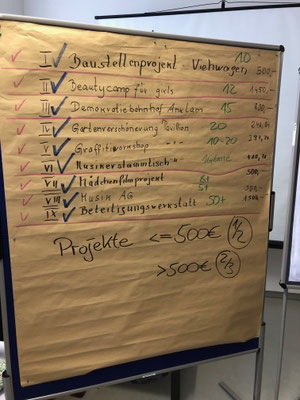 I Baustellenprojekt - Viehwagen 10 500,-
II Beautycamp für girls 12
III Demokratiebahnhof Anklam 15
IV Gartenverschönerung Pavillon 20
V Graffitiworkshop 10-20
VI Musikerstammtisch
VII Mädchenfilmprojekt 500,-
VIII Musik AG
IX Beteiligungswerkstatt 50+
Projekte <= 500€ 1/2
> 500€ 2/3